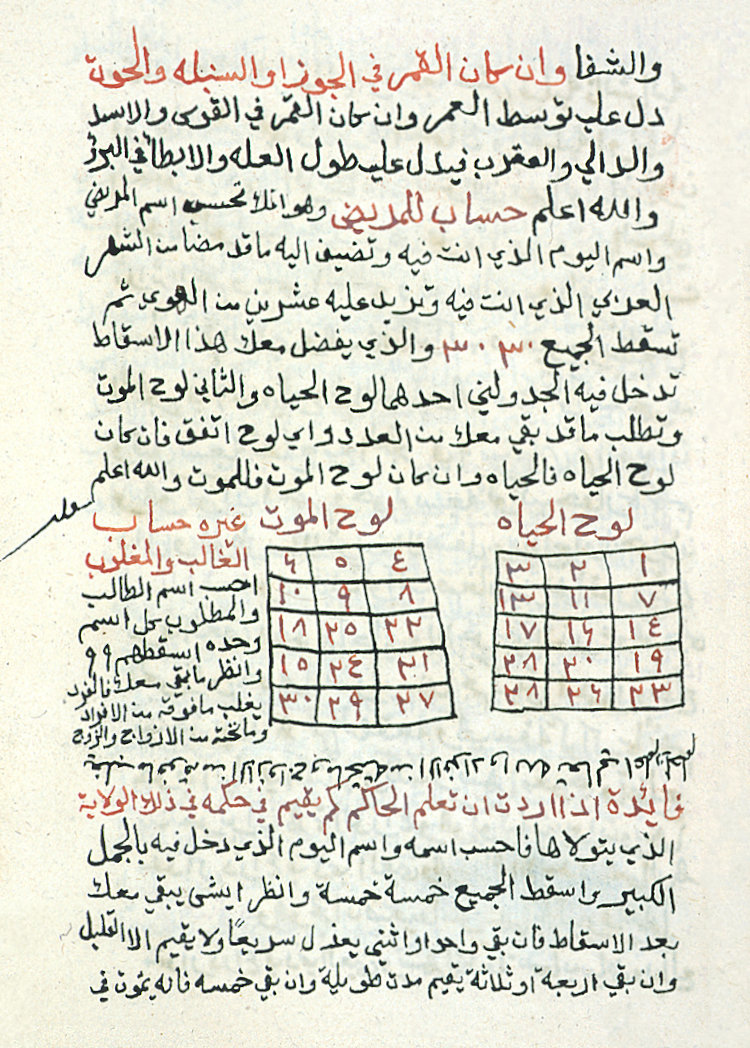 والشفا وان كان القمر في الجوزا والسنبله والحوت
دل على توسط العمر وان كان القمر في القوس والاسد
والدالي والعقرب فيدل على طول العله والابطا في البرؤ
والله اعلم حساب للمريض وهو انك تحسب اسم المريض
واسم اليوم الذي انت فيه وتضيف اليه ما قد مضا من الشهر
العربي الذي انت فيه وتزيد عليه عشرين من الهوى ثم
تسقط الجميع ٣٠ ٣٠ والذي يفضل معك هذا الاسقاط
تدخل فيه الجدولين احدهما لوح الحياه والثاني لوح الموت
وتطلب ما قد بقي معك من العدد واي لوح اتفق فان كان
لوح الحياه فالحياه وان كان لوح الموت فللموت والله اعلم
لوح الحياه
١ ٢ ٣
٧ ١١ ١٣
١٤ ١٦ ١٧
١٩ ٢٠ ٢٨
٢٣ ٢٦ ٢٨
لوح الموت
٤ ٥ ٦
٨ ٩ ١٠
٢٢ ٢٥ ١٨
٢١ ٢٤ ١٥
٢٧ ٢٩ ٣٠
غيره حساب
الغالب والمغلوب
احسب اسم الطالب
والمطلوب كل اسم
وحده اسقطهم ٩ ٩
وانظر ما بقي معك فالفرد
يغلب ما فوقه من الافراد
وما تحته من الازواج والزوج
يغلب ما فوقه من الازواج وما تحته من الافراد والله اعلم
فايدة اذا اردت ان تعلم الحاكم كم يقيم في حكمه في ذلك الولاية
الذي يتولاها فاحسب اسمه واسم اليوم الذي دخل فيه بالجمل
الكبير واسقط الجميع خمسة خمسة وانظر ايش يبقي معك
بعد الاسقاط فان بقي واحد او اثنين يعذل سريعا ولا يقيم الا القليل
وان بقي اربعة او ثلاثة يقيم مدة طويلة وان بقي خمسه فانه يموت في